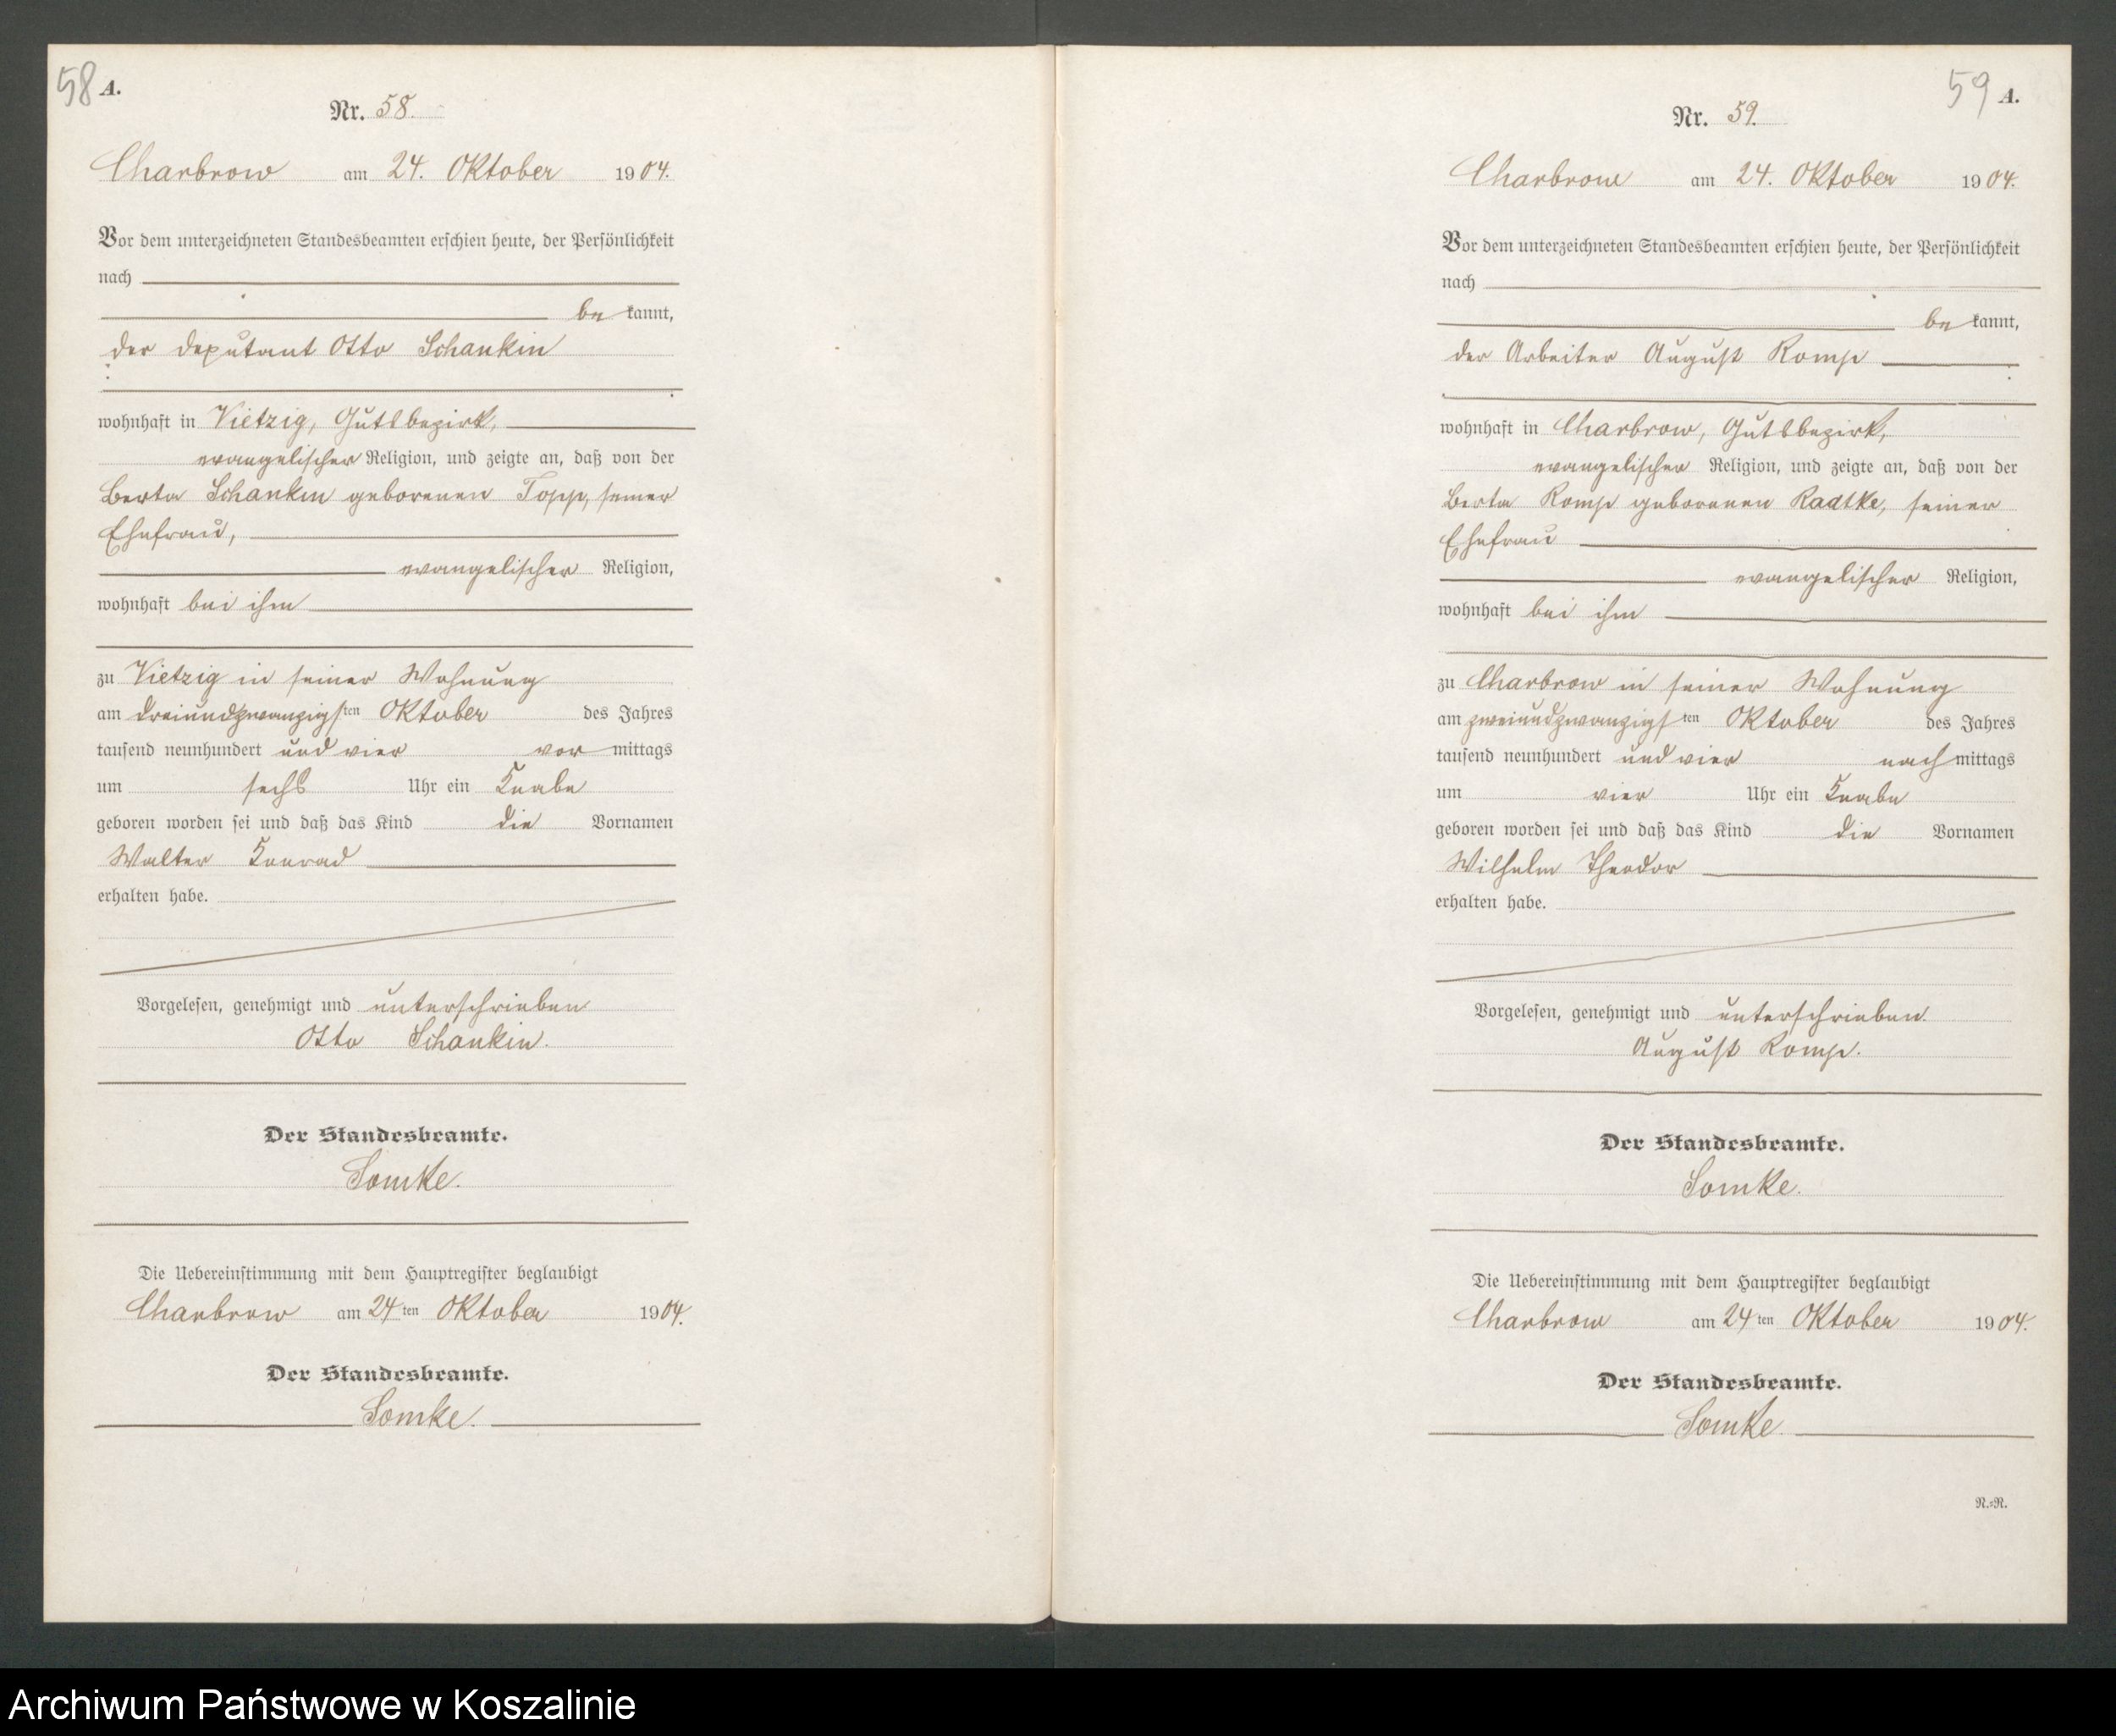 58 A.
Nr. 58.
Charbrow am 24. Oktober 1904.
Vor dem unterzeichneten Standesbeamten erschien heute, der Persönlichkeit
nach
be kannt,
der Deputant Otto Schankin
wohnhaft in Vietzig, Gutsbezirk,
evangelischer Religion, und zeigte an, daß von der
Berta Schankin geborenen Topp, seiner
Ehefrau,
evangelischer Religion,
wohnhaft bei ihm
zu Vietzig in seiner Wohnung
am dreiundzwanzigsten Oktober des Jahres
tausend neunhundert und vier vor mittags
um sechs Uhr ein Knabe
geboren worden sei und daß das Kind die Vornamen
Walter Konrad
erhalten habe.
Vorgelesen, genehmigt und unterschrieben
Otto Schankin.
Der Standesbeamte.
Somke.
Die Uebereinstimmung mit dem Hauptregister beglaubigt
Charbrow am 24ten Oktober 1904.
Der Standesbeamte.
Somke.
59 A.
Nr. 59.
Charbrow am 24. Oktober 1904.
Vor dem unterzeichneten Standesbeamten erschien heute, der Persönlichkeit
nach
be kannt,
der Arbeiter August Romp
wohnhaft in Charbrow, Gutsbezirk,
evangelischer Religion, und zeigte an, daß von der
Berta Romp geborenen Radtke, seiner
Ehefrau
evangelischer Religion,
wohnhaft bei ihm
zu Charbrow in seiner Wohnung
am zweiundzwanzigsten Oktober des Jahres
tausend neunhundert und vier nach mittags
um vier Uhr ein Knabe
geboren worden sei und daß das Kind die Vornamen
Wilhelm Theodor
erhalten habe.
Vorgelesen, genehmigt und unterschrieben.
August Romp.
Der Standesbeamte.
Somke.
Die Uebereinstimmung mit dem Hauptregister beglaubigt
Charbrow am 24ten Oktober 1904.
Der Standesbeamte.
Somke.
N.=N.
Archiwum Państwowe w Koszalinie